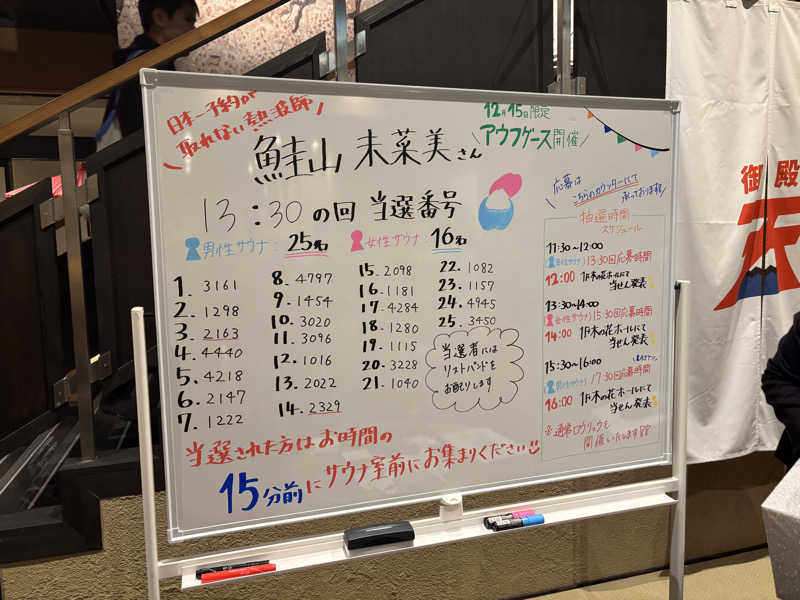 日本一予約が
取れない熱波師
12月15日限定
アウフグース開催
鮭山 未菜美さん
13:30の回 当選番号
男性サウナ: 25名
女性サウナ: 16名
1. 3161
2. 1298
3. 2163
4. 4440
5. 4218
6. 2147
7. 1222
8. 4797
9. 1454
10. 3020
11. 3096
12. 1016
13. 2022
14. 2329
15. 2098
16. 1181
17. 4284
18. 1280
19. 1115
20. 3228
21. 1040
22. 1082
23. 1157
24. 4945
25. 3450
当選者には
リストバンドを
お配りします
当選された方はお時間の
15分前にサウナ室前にお集まりください
応募は
こちらのカウンターにて
承っております
抽選時間
スケジュール
11:30~12:00
(男性サウナ) 13:30回応募時間
12:00 1F木の花ホールにて
当せん発表
13:30~14:00
(女性サウナ) 15:30回応募時間
14:00 1F木の花ホールにて
当せん発表
15:30~16:00
(男性サウナ) 17:30回応募時間
16:00 1F木の花ホールにて
当せん発表
※通常ロウリュウも
開催いたします
御殿